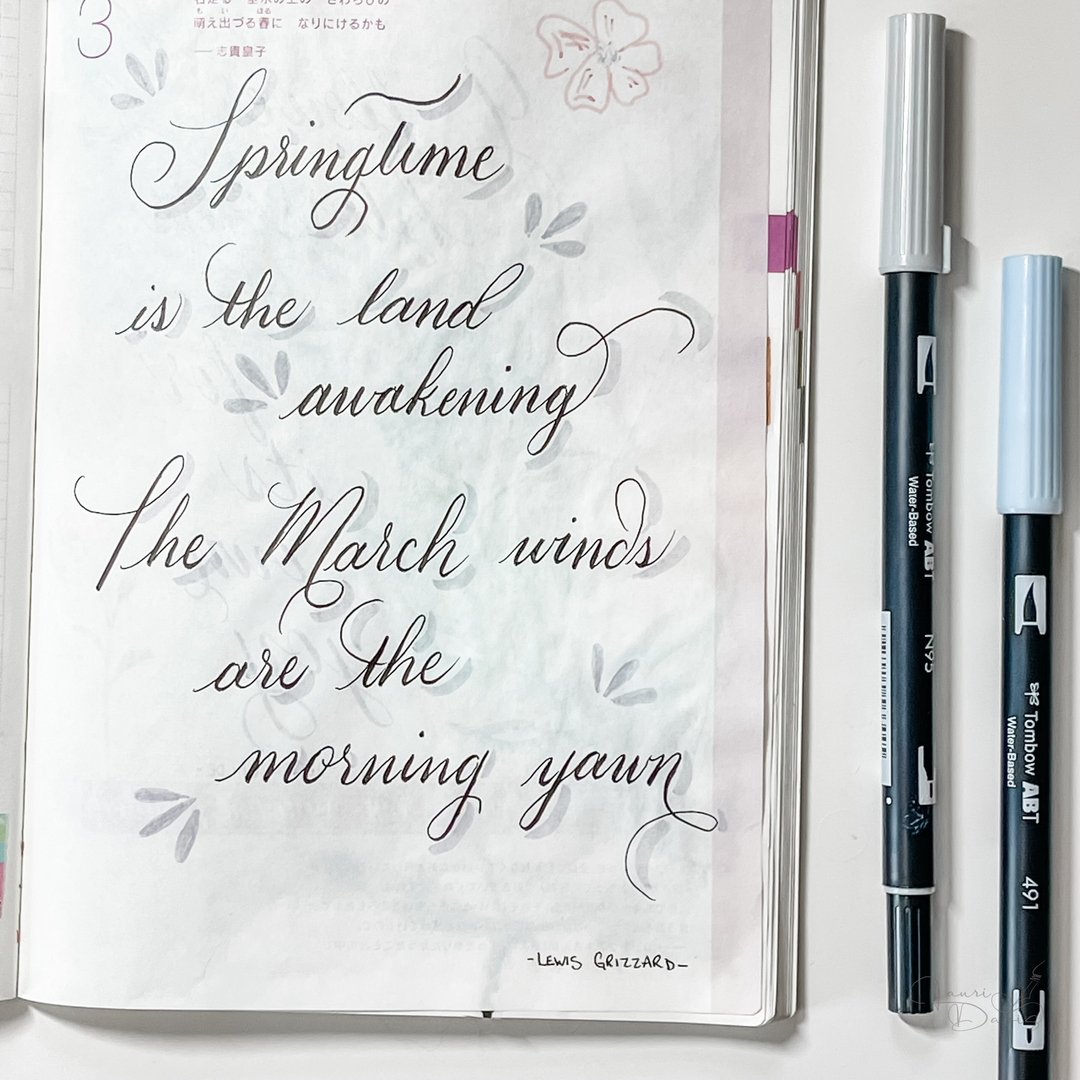 3
萌え出づる春に なりにけるかも
── 志貴皇子
Springtime
is the land
awakening
The March winds
are the
morning yawn
-LEWIS GRIZZARD-
Tombow ABT
Water-Based
N95
Tombow ABT
Water-Based
491